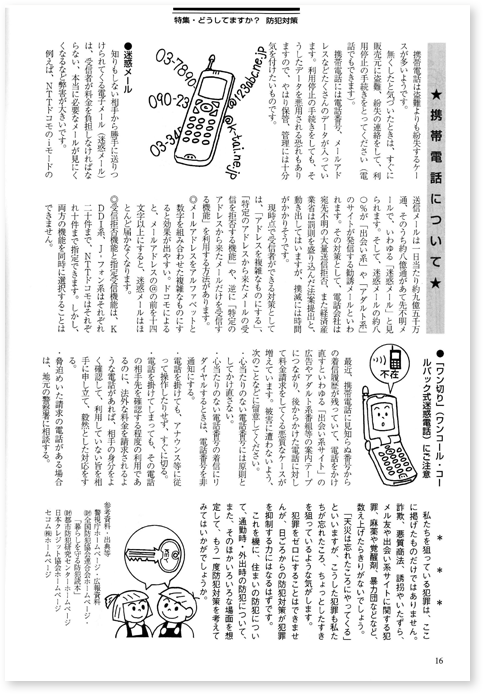 特集・どうしてますか？ 防犯対策
★携帯電話について★
携帯電話は盗難よりも紛失するケー
スが多いようです。
無くしたと気づいたときは、すぐに
販売元に盗難、紛失の連絡をして、利
用停止の手続きをとってください（電
話でもできます）。
携帯電話には電話番号、メールアド
レスなどたくさんのデータが入ってい
ます。利用停止の手続きをしても、そ
うしたデータを悪用される恐れもあり
ますので、やはり保管、管理には十分
気を付けたいものです。
03-7890
090-23
03-34
@123abcne.jp
@k-tai.ne.jp
●迷惑メール
知りもしない相手から勝手に送りつ
けられてくる電子メール（迷惑メール）
は、受信者が料金を負担しなければな
らない、本当に必要なメールが見にく
くなるなど弊害が大きいです。
例えば、NTTドコモのiモードの
送信メールは一日当たり約九億五千万
通、そのうち約八億通があて先不明メ
ールで、いわゆる「迷惑メール」と見
られます。そして、迷惑メールの約八
〇％が「出会い系」や「アダルト系」
のサイトが発信する勧誘メールといわ
れます。その対策として、電話会社は
宛先不明の大量送信拒否、また経済産
業省は罰則を盛り込んだ法案提出と、
動き出してはいますが、撲滅には時間
がかかりそうです。
現時点で受信者ができる対策として
は、「アドレスを複雑なものにする」、
「特定のアドレスから来たメールの受
信を拒否する機能」や、逆に「特定の
アドレスから来たメールだけを受信す
る機能」を利用する方法があります。
◎メールアドレスをアルファベットと
数字を組み合わせた複雑なものにす
ると効果が出やすい。ドコモによる
と、メールアドレスの@の前を十四
文字以上にすると、迷惑メールはほ
とんど届かなくなります。
◎受信拒否機能と指定受信機能は、K
DDI系、J・フォン系はそれぞれ
二十件まで、NTTドコモはそれぞ
れ十件まで指定できます。しかし、
両方の機能を同時に選択することは
できません。
不在
●「ワン切り」（ワンコール・コー
ルバック式迷惑電話）にご注意
最近、携帯電話に見知らぬ番号から
の着信履歴が残っていて、電話をかけ
直すといわゆる「出会い系サイト」の
広告やアダルト系番組等の案内テープ
につながり、後からかけた電話に対し
て料金請求をしてくる悪質なケースが
増えています。被害に遭わないよう、
次のことなどに留意してください。
・心当たりのない電話番号には原則と
してかけ直さない。
・心当たりのない電話番号の着信にリ
ダイヤルするときは、電話番号を非
通知にする。
・電話を掛けても、アナウンス等に従
って操作したりせず、すぐに切る。
・電話を掛けてしまっても、その電話
の相手先を確認する程度の利用であ
るのに、法外な料金を請求されるよ
うな電話があれば、相手の身分をよ
く確認して、利用していない旨を相
手に申し立て、毅然とした対応をす
る。
・脅迫めいた請求の電話がある場合
は、地元の警察署に相談する。
＊　＊　＊
私たちを狙っている犯罪は、ここ
に掲げたものだけではありません。
詐欺、悪質商法、誘拐やいたずら、
メル友や出会い系サイトに関する犯
罪、麻薬や覚醒剤、暴力団などなど、
数え上げたらきりがないでしょう。
「天災は忘れたころにやってくる」
といいますが、こうした犯罪も私た
ちが忘れたころ、ちょっとしたすき
を狙っているような気がします。
犯罪をゼロにすることはできませ
んが、日ごろからの防犯対策が犯罪
を抑制する力にはなるはずです。
これを機に、住まいの防犯につい
て、通勤時・外出時の防犯について、
また、そのほかいろいろな場面を想
定して、もう一度防犯対策を考えて
みてはいかがでしょうか。
参考資料・出典等
警視庁ホームページ・広報資料
㈶全国防犯協会連合会ホームページ・
「暮らしを守る防犯読本」
㈶都市防犯研究センターホームページ
日本クレジット協会ホームページ
セコム㈱ホームページ
16